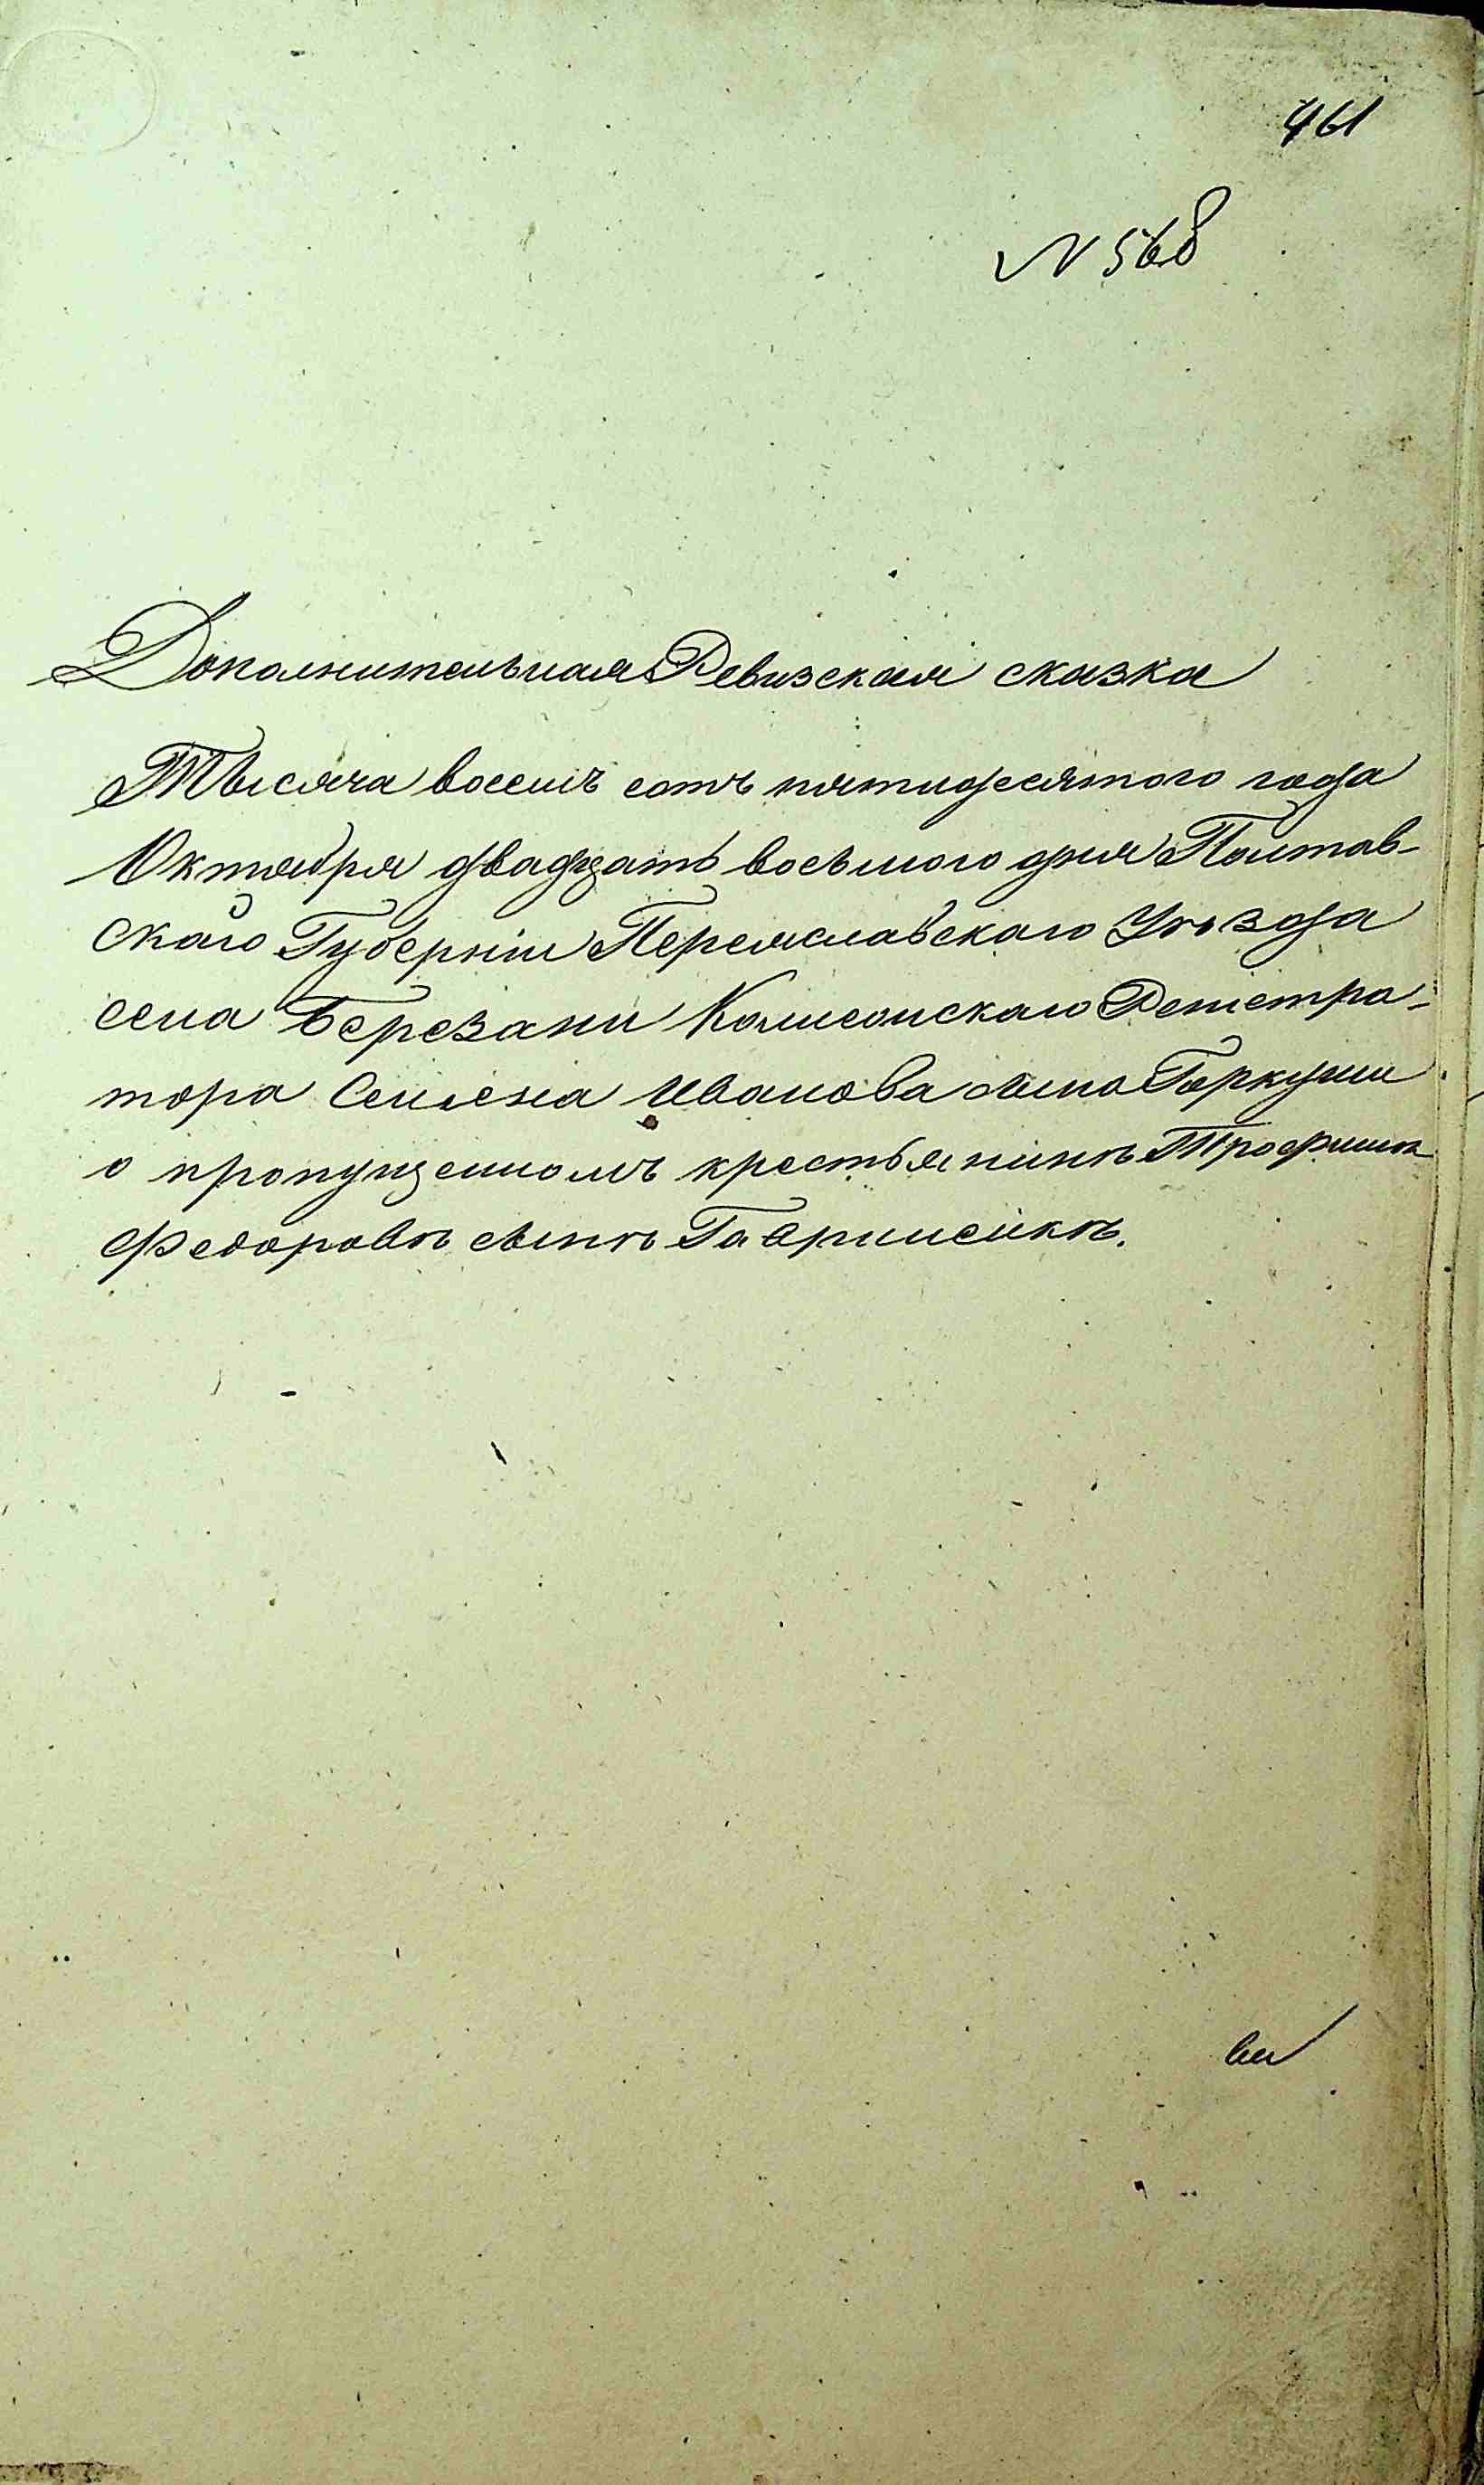 461
N 568
Дополнительная Ревизская сказка
Тысяча восемъ сотъ пятидесятого года
Октября двадцать восьмого дня Полтав-
скаго Губерніи Переяславскаго Уѣзда
села Березани Колежскаго Регистра-
тора Семена Иванова сына Гаркуши
о пропущенномъ крестьянинѣ Трофимѣ
Федоровѣ сынѣ Гаврилейкѣ.